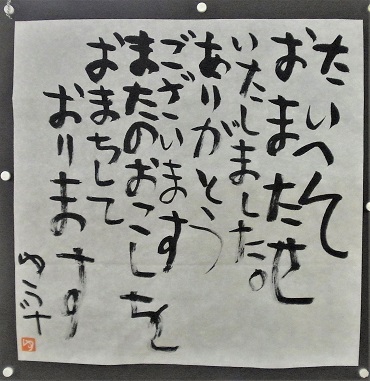 たいへん
おまたせ
いたしました。
ありがとう
ございます
またのおこしを
おまちして
おります